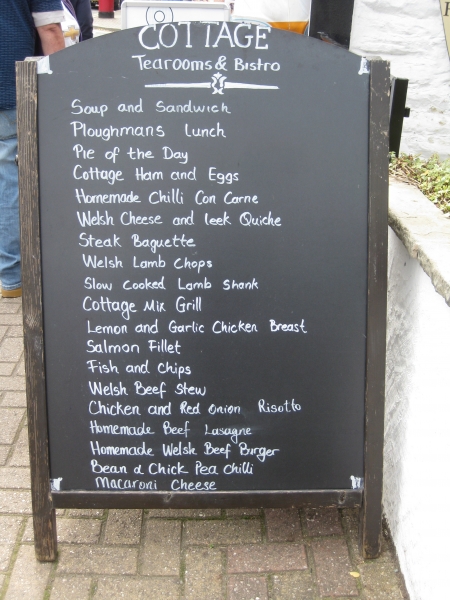 COTTAGE
Tearooms & Bistro
Soup and Sandwich
Ploughmans Lunch
Pie of the Day
Cottage Ham and Eggs
Homemade Chilli Con Carne
Welsh Cheese and leek Quiche
Steak Baguette
Welsh Lamb Chops
Slow Cooked Lamb Shank
Cottage Mix Grill
Lemon and Garlic Chicken Breast
Salmon Fillet
Fish and Chips
Welsh Beef Stew
Chicken and Red Onion Risotto
Homemade Beef Lasagne
Homemade Welsh Beef Burger
Bean & Chick Pea Chilli
Macaroni Cheese